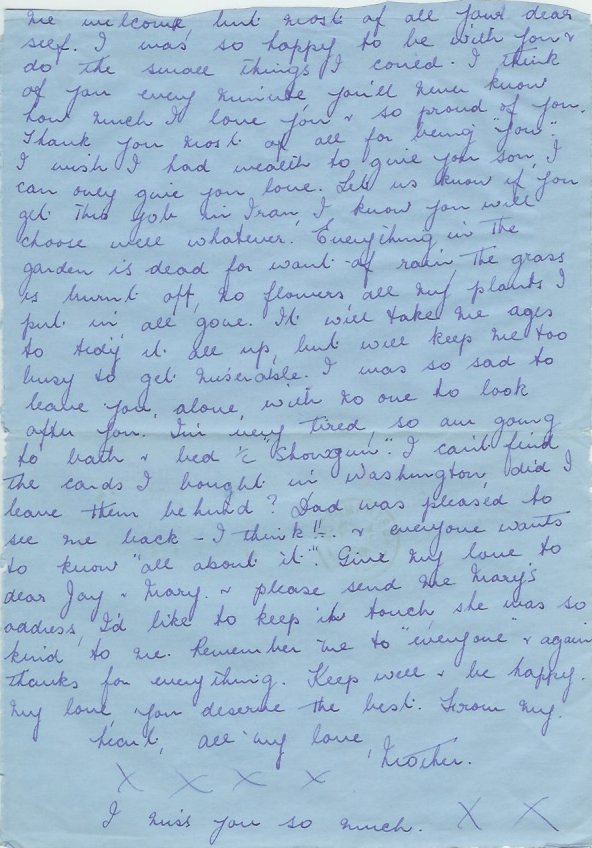 me welcome, but most of all your dear
self. I was so happy to be with you &
do the small things I could. I think
of you every minute, you'll never know
how much I love you & so proud of you.
Thank you most of all for being "you".
I wish I had wealth to give you son, I
can only give you love. Let us know if you
get this job in Iran, I know you will
choose well whatever. Everything in the
garden is dead for want of rain, the grass
is burnt off, no flowers all my plants I
put in all gone. It will take me ages
to tidy it all up, but will keep me too
busy to get miserable. I was so sad to
leave you, alone, with no one to look
after you. I'm very tired, so am going
to bath & bed "Shougun". I can't find
the cards I bought in Washington, did I
leave them behind? Dad was pleased to
see me back - I think!!. & everyone wants
to know "all about it". Give my love to
dear Jay & Mary. & please send me Mary's
address, I'd like to keep in touch she was so
kind to me. Remember me to "everyone" & again
thanks for everything. Keep well & be happy.
My love, you deserve the best. From my
heart, all my love,
Mother.
X X X X
I miss you so much. X X